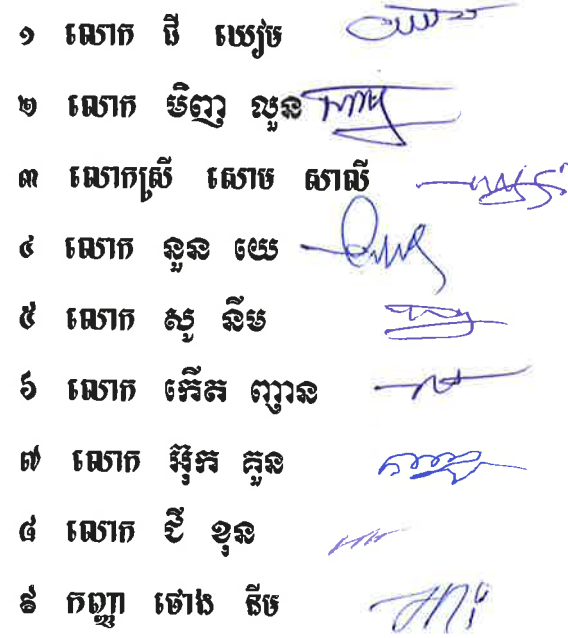 ១ លោក ជី ឃៀម
២ លោក មិញ លួន
៣ លោកស្រី សោម សាលី
៤ លោក នួន យេ
៥ លោក សូ នីម
៦ លោក កើត ញាន
៧ លោក អ៊ុក គួន
៨ លោក ជី ខុន
៩ កញ្ញា ថោង នីម